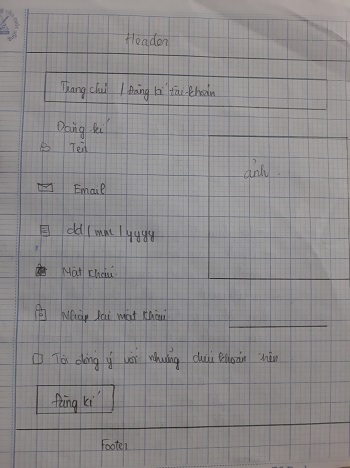 Header
Trang chủ / Đăng kí tài khoản
Đăng kí
Tên
ảnh
Email
dd / mm / yyyy
Mật khẩu
Nhập lại mật khẩu
Tôi đồng ý với những điều khoản trên
Đăng kí
Footer